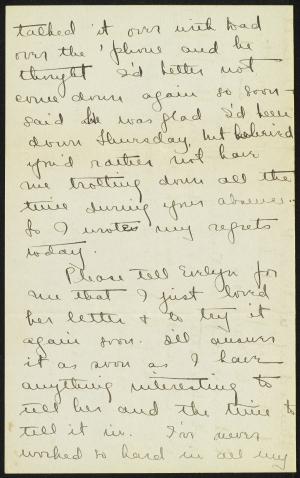 talked it over with Dad
over the 'phone and he
thought I'd better not
come down again so soon -
said he was glad I'd been
down Thursday, but believed
you'd rather not have
me trotting down all the
time during your absence.
So I wrote my regrets
today.
Please tell Evelyn for
me that I just loved
her letter & to try it
again soon. I'll answer
it as soon as I have
anything interesting to
tell her and the time to
tell it in. I've never
worked so hard in all my